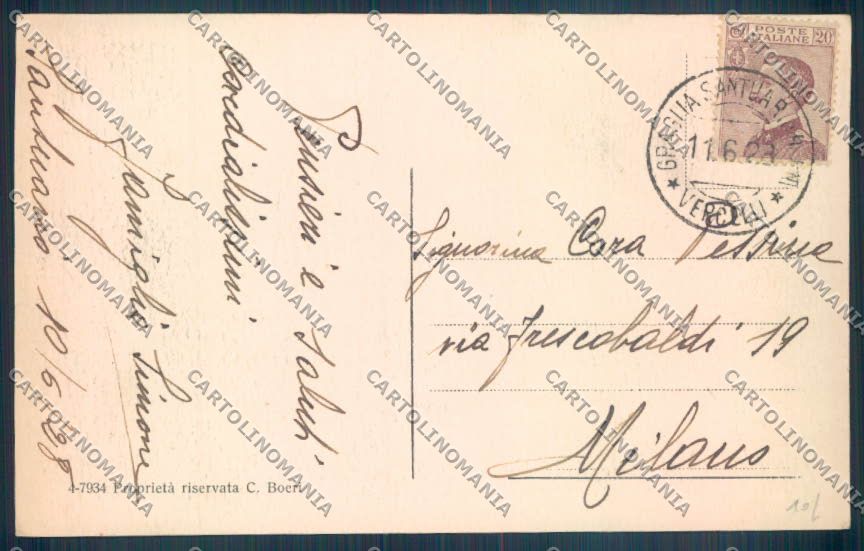 Pensieri e Saluti
Cordialissimi
Famiglia Simone
Santuario 10/6 928
4-7934 Proprietà riservata C. Boeri
POSTE ITALIANE 20
GRAGLIA SANTUARIO
11.6.28
VERCELLI
Signorina Cora Pessina
via Frescobaldi 19
Milano
CARTOLINOMANIA